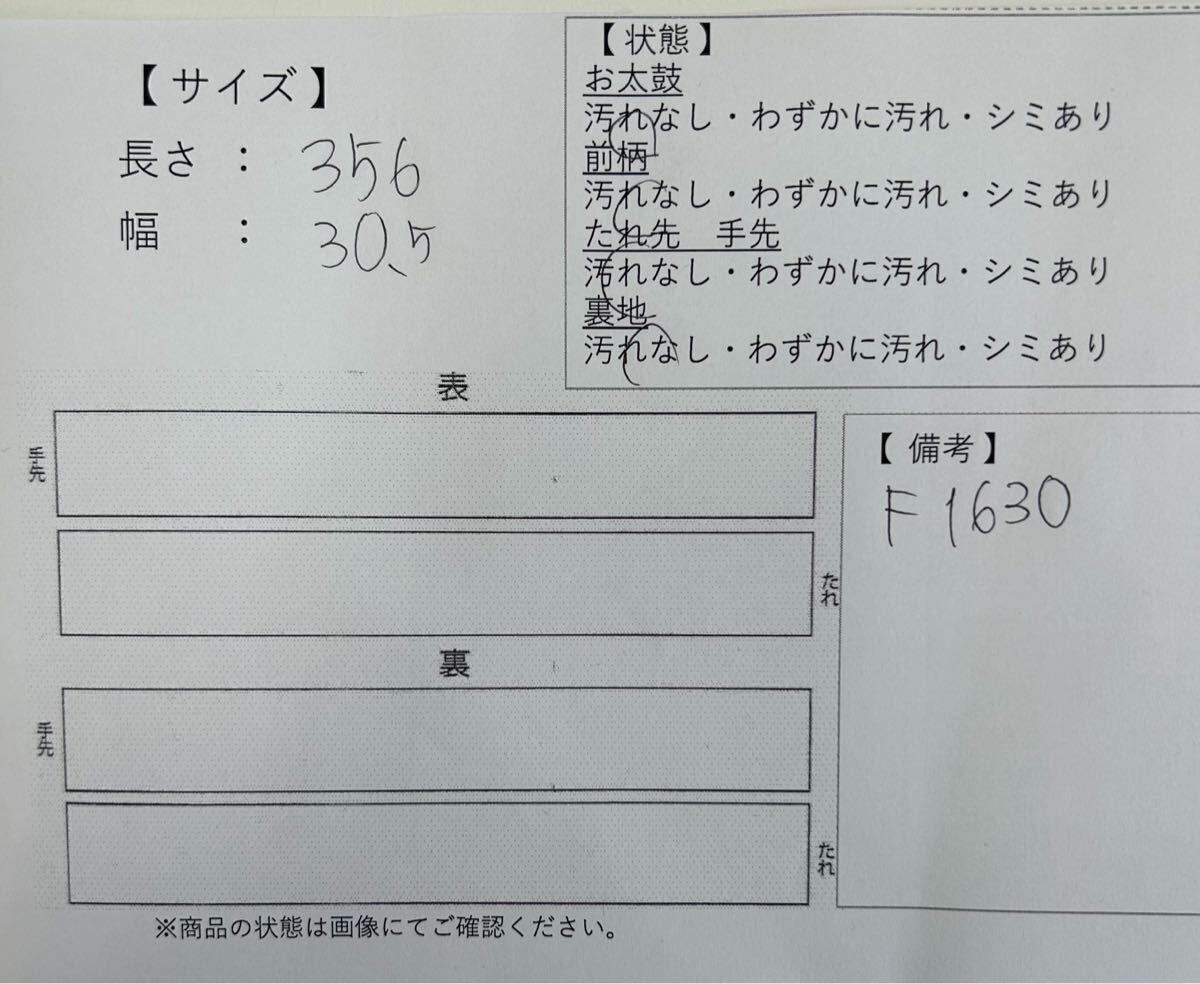 【 サイズ 】
長さ ： 356
幅 ： 30.5
【 状態 】
お太鼓
汚れなし・わずかに汚れ・シミあり
前柄
汚れなし・わずかに汚れ・シミあり
たれ先 手先
汚れなし・わずかに汚れ・シミあり
裏地
汚れなし・わずかに汚れ・シミあり
表
手先
たれ
裏
手先
たれ
【 備考 】
F 1630
※商品の状態は画像にてご確認ください。